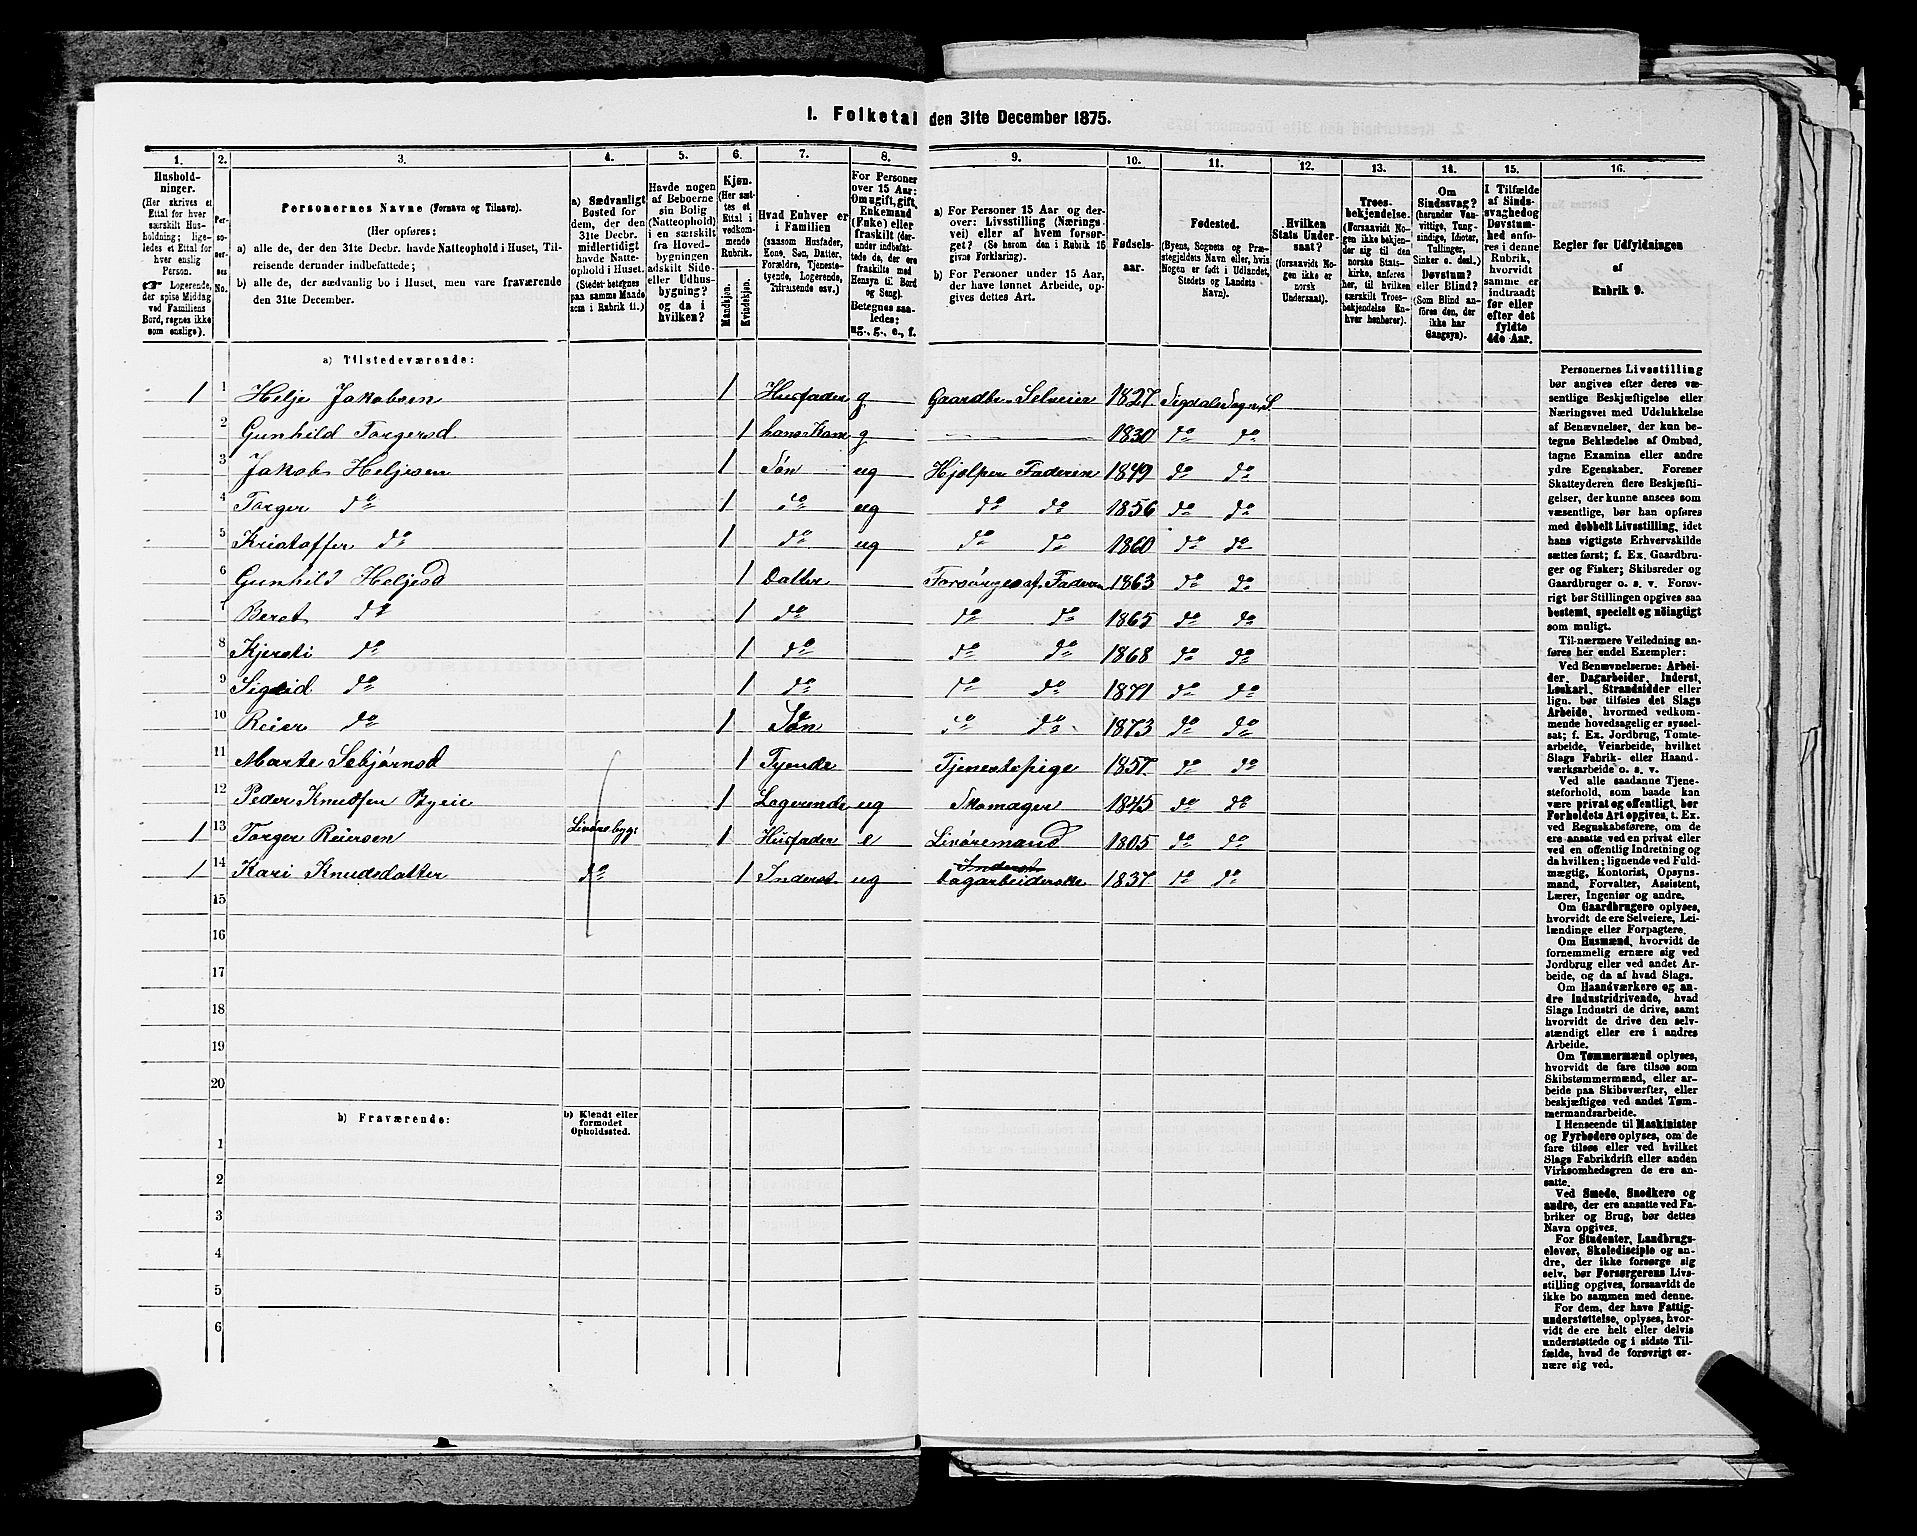 I. Folketal den 31te December 1875.
1. 2. 3. 4. 5. 6. 7. 8. 9. 10. 11. 12. 13. 14. 15. 16.
Hushold-
ninger.
(Her skrives et
Ettal for hver
særskilt Hus-
holdning; lige-
ledes et Ettal for
hver enslig
Person.
☞ Logerende,
der spise Middag
ved Familiens
Bord, regnes ikke
som enslige).
Per-
so-
ner-
nes
No.
Personernes Navne (Fornavn og Tilnavn).
(Her opføres;
a) alle de, der den 31te Decbr. havde Natteophold i Huset, Til-
reisende derunder indbefattede;
b) alle de, der sædvanlig bo i Huset, men vare fraværende
den 31te December.
a) Sædvanligt
Bosted for
dem, der den
31te Decbr.
midlertidigt
havde Natte-
ophold i Huset.
(Stedet betegnes
paa samme Maade
som i Rubrik 11.)
Havde nogen
af Beboerne
sin Bolig
(Natteophold)
i en særskilt
fra Hoved-
bygningen
adskilt Side-
eller Udhus-
bygning?
og da i
hvilken?
Kjøn.
(Her sæt-
tes et
Ettal i
vedkom-
mende
Rubrik.
Mandskjøn.
Kvindekjøn.
Hvad Enhver er
i Familien
(saasom Husfader,
Kone, Søn, Datter,
Forældre, Tjeneste-
tyende, Logerende,
Tilreisende osv.)
For Personer
over 15 Aar:
Om ugift, gift,
Enkemand
(Enke) eller
fraskilt (der-
under indbefat-
tede de, der ere
fraskilte med
Hensyn til Bord
og Seng).
Betegnes saa-
ledes:
ug., g., e., f.
a) For Personer 15 Aar og der-
over: Livsstilling (Nærings-
vei) eller af hvem forsør-
get? (Se herom den i Rubrik 16
givne Forklaring).
b) For Personer under 15 Aar,
der have lønnet Arbeide, op-
gives dettes Art.
Fødsels-
aar.
Fødested.
(Byens, Sognets og Præ-
stegjeldets Navn eller, hvis
Nogen er født i Udlandet,
Stedets og Landets
Navn).
Hvilken
Stats Under-
saat?
(forsaavidt No-
gen ikke er
norsk
Undersaat).
Troes-
bekjendelse.
(Forsaavidt No-
gen ikke bekjen-
der sig til den
norske Stats-
kirke, anføres
her, til hvilken
særskilt Troes-
bekjendelse En-
hver henhører).
Om
Sindssvag?
(herunder Van-
vittige, Tung-
sindige, Idioter,
Tullinger,
Sinker o. desl.)
Døvstum?
eller Blind?
(Som Blind an-
føres den, der
ikke har
Gangsyn).
I Tilfælde
af Sinds-
svaghed og
Døvstum-
hed anfø-
res i denne
Rubrik,
hvorvidt
samme er
indtraadt
før eller
efter det
fyldte
4de Aar.
Regler før Udfyldningen
af
Rubrik 9.
a) Tilstedeværende:
1 1 Helje Jakobsen 1 Husfader g Gaardbr. Selveier 1827 Sigdals Sogn, S.
2 Gunhild Torgersd 1 hans Kone g 1830 do do
3 Jakob Heljesen 1 Søn ug Hjælper Faderen 1849 do do
4 Torger do 1 do ug do do 1856 do do
5 Kristoffer do 1 do ug do do 1860 do do
6 Gunhild Heljesd 1 Datter Forsørges af Faderen 1863 do do
7 Beret do 1 do do do 1865 do do
8 Kjersti do 1 do do do 1868 do do
9 Sigrid do 1 do do do 1871 do do
10 Reier do 1 Søn do do 1873 do do
11 Marte Sebjørnsd 1 Tyende Tjenestepige 1857. do do
12 Peder Knudsen Byeie 1 Logerende ug Skomager 1845 do do
1 13 Torger Reiersen Livøresbygn 1 Husfader e Livøremand 1805 do do
1 14 Kari Knudsdatter do 1 Inderst ug Inderst Dagarbeiderske 1837 do do
15
16
17
18
19
20
b) Fraværende:
b) Kjendt eller
formodet
Opholdssted.
1
2
3
4
5
6
Personernes Livsstilling
bør angives efter deres væ-
sentlige Beskjæftigelse eller
Næringsvei med Udelukkelse
af Benævnelser, der kun be-
tegne Beklædelse af Ombud,
tagne Examina eller andre
ydre Egenskaber. Forener
Skatteyderen flere Beskjæfti-
gelser, der kunne ansees som
væsentlige, bør han opføres
med dobbelt Livsstilling, idet
hans vigtigste Erhvervskilde
sættes først; f. Ex. Gaardbru-
ger og Fisker; Skibsreder og
Gaardbruger o. s. v. Forøv-
rigt bør Stillingen opgives saa
bestemt, specielt og nöiagtigt
som muligt.
Til-nærmere Veiledning an-
føres her endel Exempler:
Ved Benævnelserne: Arbei-
der, Dagarbeider, Inderst,
Løskarl, Strandsidder eller
lign. bør tilføies det Slags
Arbeide, hvormed vedkom-
mende hovedsagelig er syssel-
sat; f. Ex. Jordbrug, Tomte-
arbeide, Veiarbeide, hvilket
Slags Fabrik- eller Haand-
værksarbeide o. s. v.
Ved alle saadanne Tjene-
steforhold, som baade kan
være privat og offentligt, bør
Forholdets Art opgives, t. Ex.
ved Regnskabsførere, om de
ere ansatte ved en privat eller
ved en offentlig Indretning og
da hvilken; lignende ved Fuld-
mægtig, Kontorist, Opsyns-
mand, Forvalter, Assistent,
Lærer, Ingeniør og andre.
Om Gaardbrugere oplyses,
hvorvidt de ere Selveiere, Lei-
lændinge eller Forpagtere.
Om Husmænd, hvorvidt de
fornemmelig ernære sig ved
Jordbrug eller ved andet Ar-
beide, og da af hvad Slags.
Om Haandværkere og an-
dre Industridrivende, hvad
Slags Industri de drive, samt
hvorvidt de drive den selv-
stændigt eller ere i andres
Arbeide.
Om Tømmermænd oplyses,
hvorvidt de fare tilsøs som
Skibstømmermænd, eller ar-
beide paa Skibsværfter, eller
beskjæftiges ved andet Tøm-
mermandsarbeide.
I Henseende til Maskinister
og Fyrbødere oplyses, om de
fare tilsøs eller ved hvilket
Slags Fabrikdrift eller anden
Virksomhedsgren de ere an-
satte.
Ved Smede, Snedkere og
andre, der ere ansatte ved Fa-
briker og Brug, bør dettes
Navn opgives.
For Studenter, Landbrugs-
elever, Skoledisciple og an-
dre, der ikke forsørge sig
selv, bør Forsørgerens Livs-
stilling opgives, forsaavidt de
ikke bo sammen med denne.
For dem, der have Fattig-
understøttelse, oplyses, hvor-
vidt de ere helt eller delvis
understøttede og i sidste Til-
fælde, hvad de forøvrigt er-
nære sig ved.